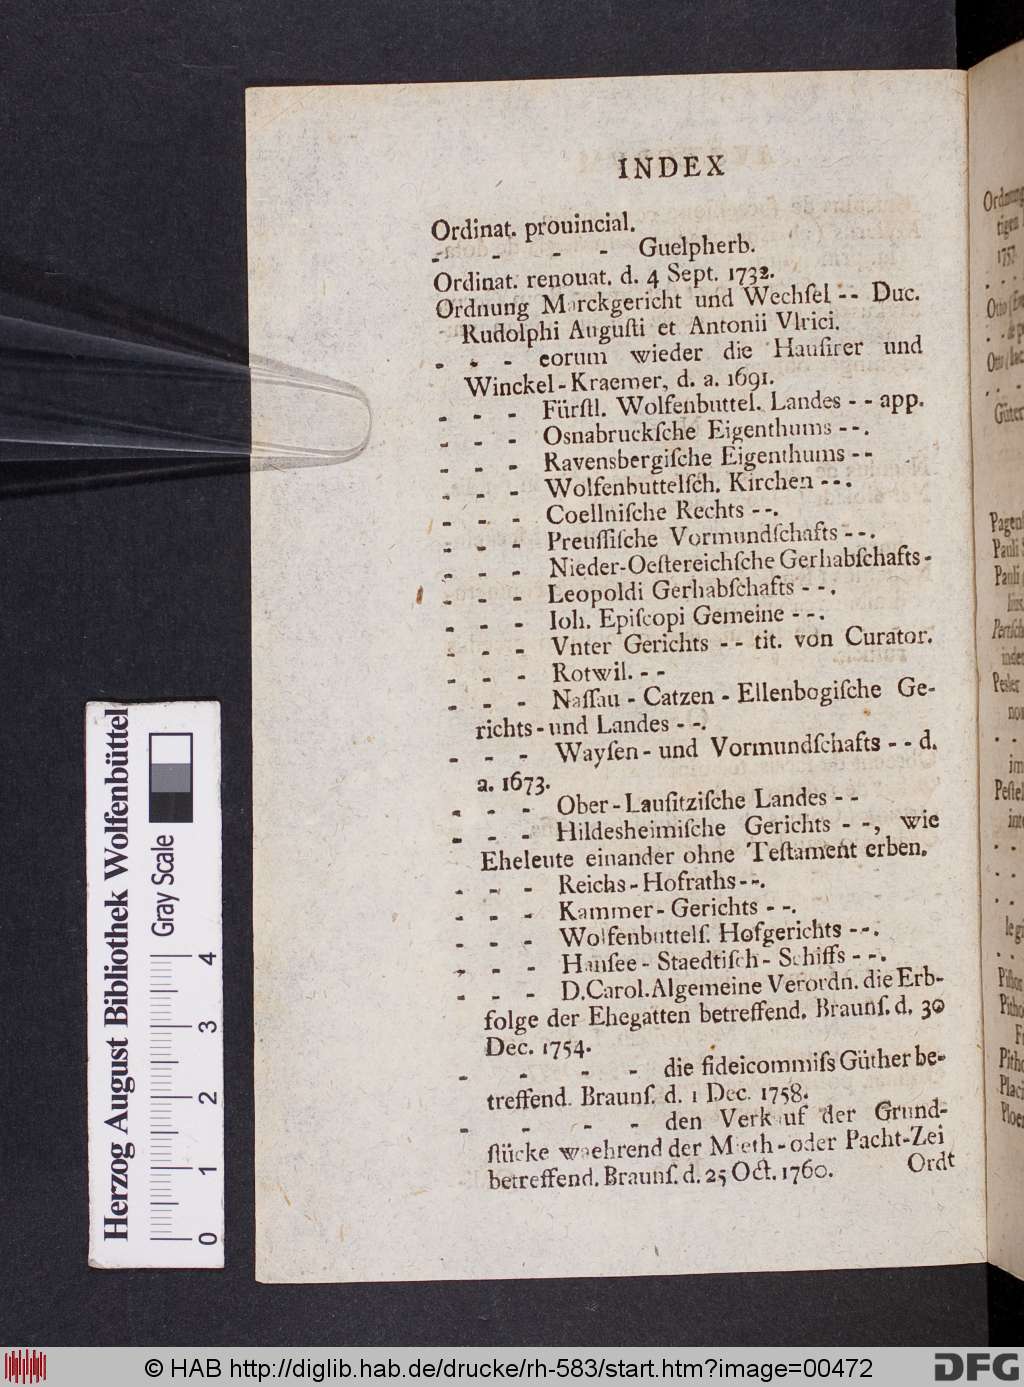 INDEX
Ordinat. prouincial.
- - - - Guelpherb.
Ordinat. renouat. d. 4 Sept. 1732.
Ordnung Marckgericht und Wechſel -- Duc.
Rudolphi Auguſti et Antonii Vlrici.
- - - eorum wieder die Hauſirer und
Winckel-Kraemer, d. a. 1691.
- - - Fürſtl. Wolfenbuttel. Landes -- app.
- - - Osnabruckſche Eigenthums --.
- - - Ravensbergiſche Eigenthums --
- - - Wolfenbuttelſch. Kirchen --.
- - - Coellniſche Rechts --.
- - - Preuſſiſche Vormundſchafts --.
- - - Nieder-Oeſtereichſche Gerhabſchafts -
- - - Leopoldi Gerhabſchafts --.
- - - Ioh. Epiſcopi Gemeine --.
- - - Vnter Gerichts -- tit. von Curator.
- - - Rotwil. --
- - - Naſſau - Catzen - Ellenbogiſche Ge-
richts - und Landes --.
- - - Wayſen - und Vormundſchafts -- d.
a. 1673.
- - - Ober - Lauſitziſche Landes --
- - - Hildesheimiſche Gerichts --, wie
Eheleute einander ohne Teſtament erben.
- - - Reichs - Hofraths --.
- - - Kammer - Gerichts --.
- - - Wolfenbuttelſ. Hofgerichts --.
- - - Hanſee - Staedtiſch - Schiffs --.
- - - D. Carol. Algemeine Verordn. die Erb-
folge der Ehegatten betreffend. Braunſ. d. 30
Dec. 1754.
- - - - die fideicommiſs Güther be-
treffend. Braunſ. d. 1 Dec. 1758.
- - - - den Verkauf der Grund-
ſtücke waehrend der Mieth - oder Pacht-Zei
betreffend. Braunſ. d. 25 Oct. 1760.
Ordt
Herzog August Bibliothek Wolfenbüttel
Gray Scale
0 1 2 3 4
© HAB http://diglib.hab.de/drucke/rh-583/start.htm?image=00472
DFG